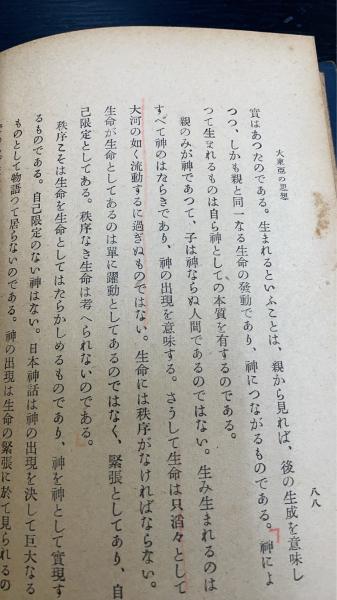 大東亞の思想
八八
實はあつたのである。生まれるといふことは、親から見れば、後の生成を意味し
つつ、しかも親と同一なる生命の發動であり、神につながるものである。神によ
つて生まれるものは自ら神としての本質を有するのである。
親のみが神であつて、子は神ならぬ人間であるのではない。生み生まれるのは
すべて神のはたらきであり、神の出現を意味する。さうして生命は只滔々として
大河の如く流動するに過ぎぬものではない。生命には秩序がなければならない。
生命が生命としてあるのは單に躍動としてあるのではなく、緊張としてあり、自
己限定としてある。秩序なき生命は考へられないのである。
秩序こそは生命を生命としてはたらかしめるものであり、神を神として實現す
るものである。自己限定のない神はない。日本神話は神の出現を決して巨大なる
ものとして物語つて居らないのである。神の出現は生命の緊張に於て見られるの